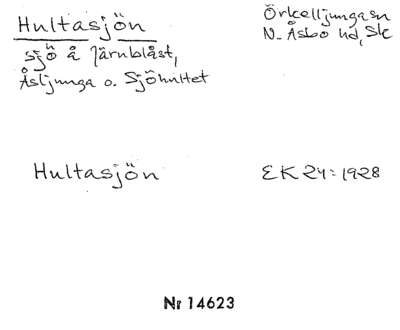 Hultasjön
Örkelljungasn
N. Åsbo hd, Sk
Sjö å Järnblåst,
Åsljunga o. Sjöhultet
Hultasjön
EK 24: 1928
Nr 14623